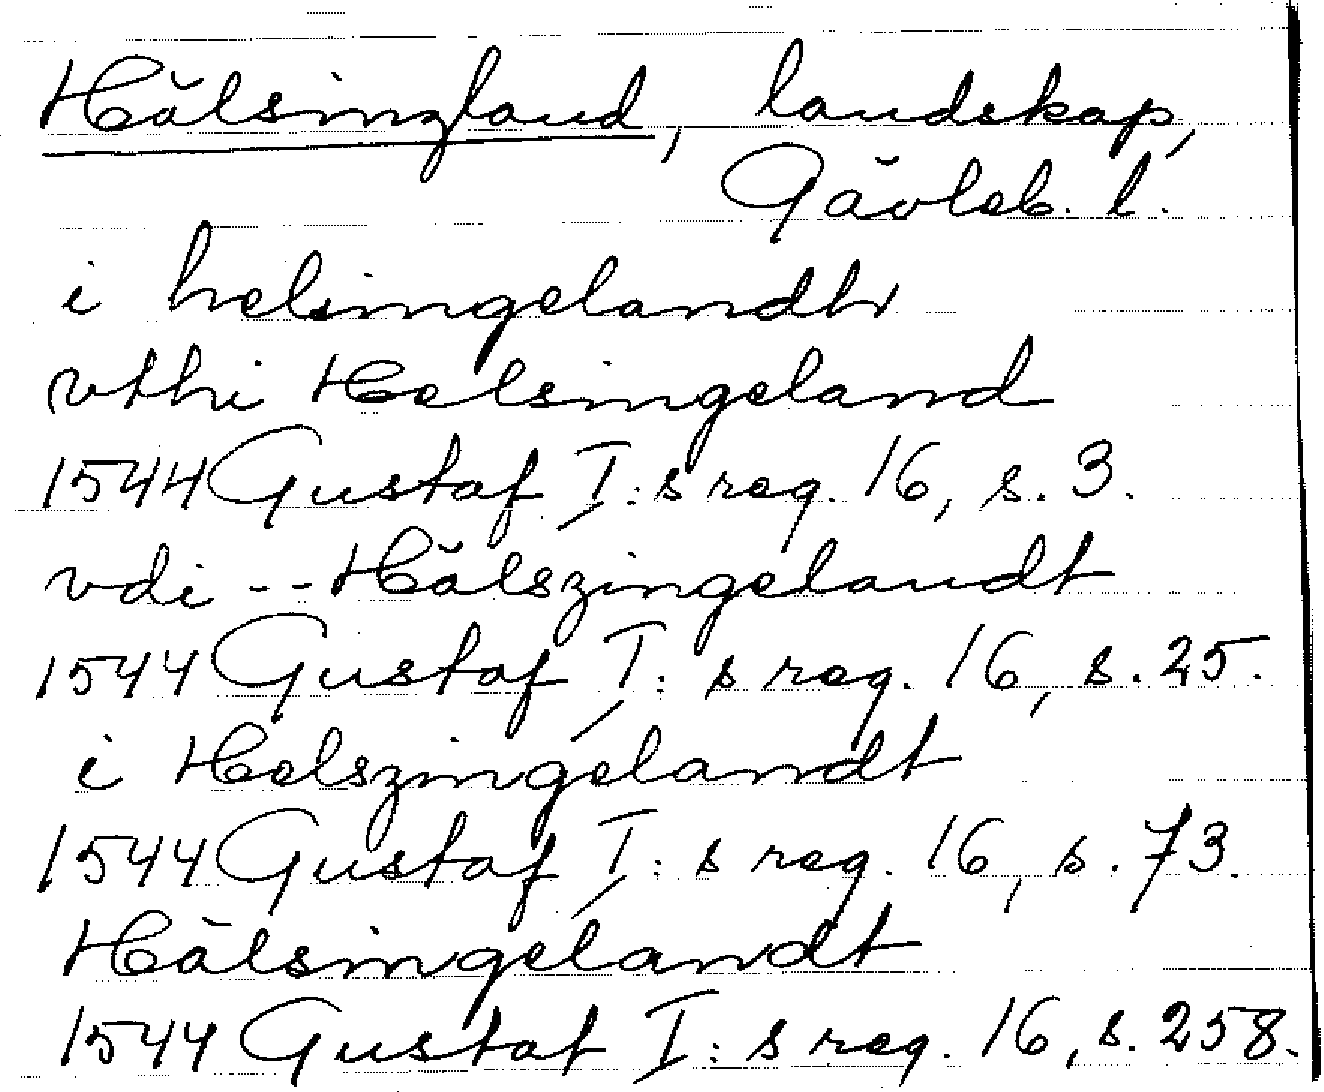 Hälsingland, landskap,
Gävleb. l.
i helsingelandh
vthi Helsingeland
1544 Gustaf I:s reg. 16, s. 3.
vdi -- Hälszingelandt
1544 Gustaf I:s reg. 16, s. 25.
i Helszingelandt
1544 Gustaf I:s reg. 16, s. 73.
Hälsingelandt
1544 Gustaf I:s reg. 16, s. 258.